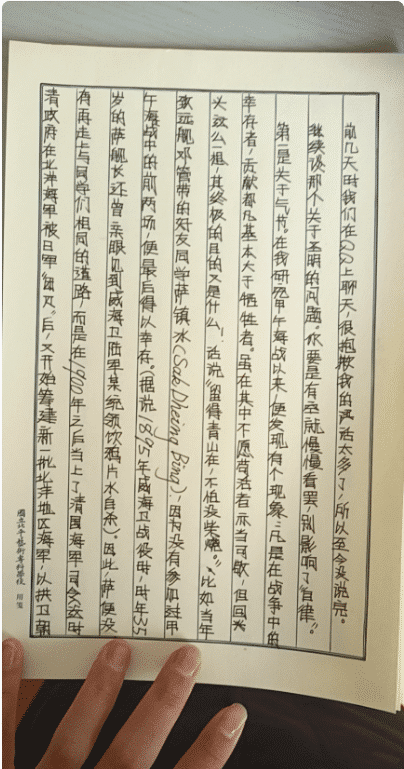 前几天时我们在QQ上聊天，很抱歉我的废话太多了，所以至今没说完。
继续谈那个关于圣明的问题。你要是有空就慢慢看罢，别影响了“自律”。
第一是关于气节。在我研究甲午海战以来，便发现有个现象：凡是在战争中的
幸存者，贡献都凡基本大于牺牲者。虽在其中不愿苟活者亦当可敬，但回头
头这么一想，其终极的目的又是什么！话说“留得青山在，不怕没柴烧。”比如当年
致远舰邓管带的好友同学萨镇冰（Sak Dheing Bing），因为没有参加过甲
午海战中的前两场，便最后得以幸存。（据说1895年威海卫战役时，时年35
岁的萨舰长还曾亲眼见到威海卫陆军某统领饮鸦片水自杀）。因此，萨便没
有再走上与同学们相同的道路，而是在1900年之后当上了清国海军司令。这时
清政府在北洋海军被日军“团灭”后，又开始筹建新一批北洋地区海军，以拱卫朝
國立北平藝術專科學校